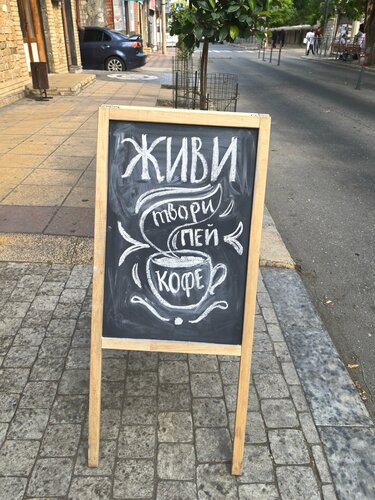 ЖИВИ
твори
ПЕЙ
КОФЕ